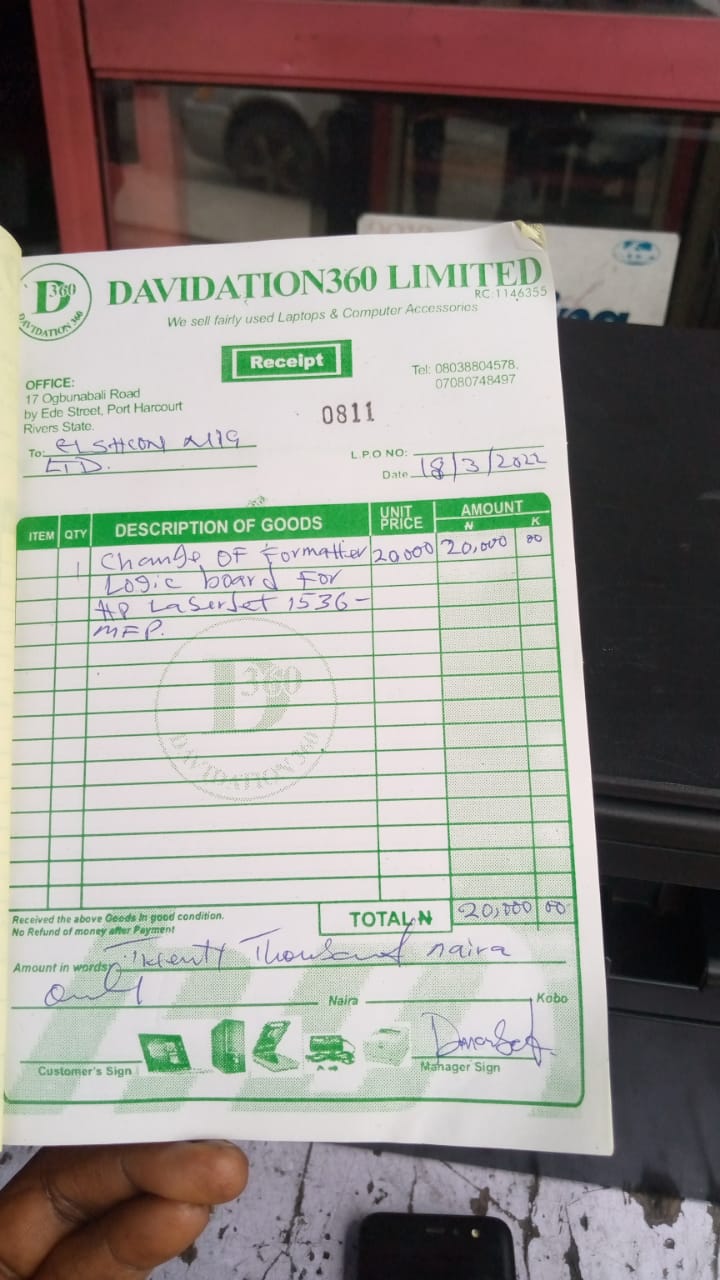 D360
DAVIDATION 360
DAVIDATION360 LIMITED
RC:1146355
We sell fairly used Laptops & Computer Accessories
Receipt
OFFICE:
17 Ogbunabali Road
by Ede Street, Port Harcourt
Rivers State.
Tel: 08038804578,
07080748497
0811
To: ELSHCON NIG
LTD.
L.P.O NO:
Date 18/3/2022
ITEM QTY DESCRIPTION OF GOODS UNIT PRICE AMOUNT
₦ K
1 Change OF Formatter 20000 20,000 00
Logic board For
HP LaserJet 1536-
MFP.
D360
DAVIDATION 360
Received the above Goods In good condition.
No Refund of money after Payment
TOTAL ₦ 20,000 00
Amount in words Twenty Thousand naira
only Naira Kobo
Customer's Sign
Manager Sign